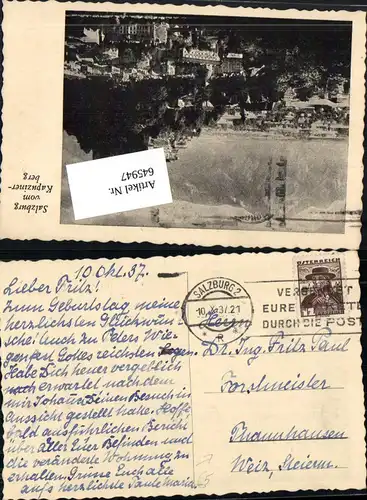 Salzburg
vom
Kapuziner-
berg
Artikel Nr.
645947
10 Okt. 37.
Lieber Fritz!
Zum Geburtstag meine
herzlichsten Glückwün-
sche! Auch zu Peters Wie-
genfest Gottes reichsten Segen.
Habe Dich heuer vergeblich
erwartet nachdem
mir Johann Deinen Besuch in
Aussicht gestellt hatte. Hoffe
bald ausführlichen Bericht
über aller Euer Befinden und
die veränderte Wohnung zu
erhalten. Grüsse Euch alle
aufs herzlichste Tante Maria
SALZBURG 2
10. X. 37. 21
ÖSTERREICH
EURE
DURCH DIE POST
Herrn
Dr. Ing. Fritz Paul
Forstmeister
Thannhausen
Weiz, Steierm.